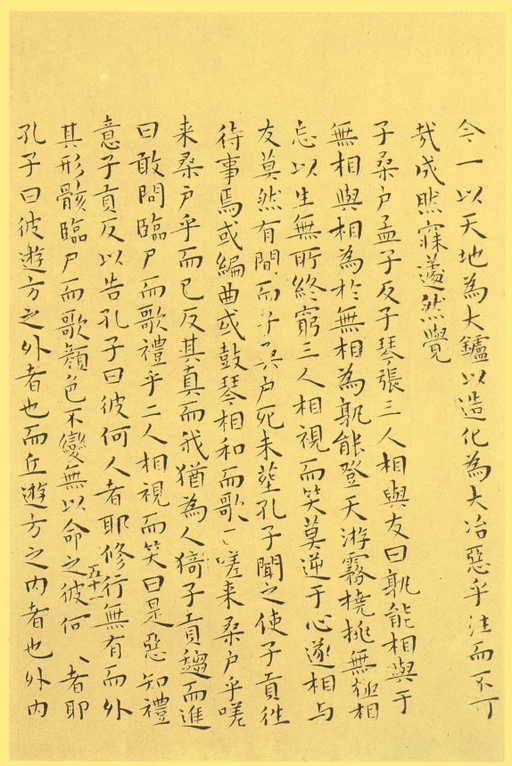 今一以天地為大鑪以造化為大冶惡乎往而不可
哉成然寐蘧然覺
子桑户孟子反子琴張三人相與友曰孰能相與于
無相與相為於無相為孰能登天游霧撓挑無極相
忘以生無所終窮三人相視而笑莫逆于心遂相与
友莫然有間而子桑户死未塟孔子聞之使子貢往
待事焉或編曲或鼓琴相和而歌曰嗟来桑户乎嗟
来桑户乎而已反其真而我猶為人猗子貢趨而進
曰敢問臨尸而歌禮乎二人相視而笑曰是惡知禮
意子貢反以告孔子曰彼何人者耶修行無有而外
其形骸臨尸而歌顏色不變無以命之彼何、者耶
五十一
孔子曰彼遊方之外者也而丘遊方之内者也外内